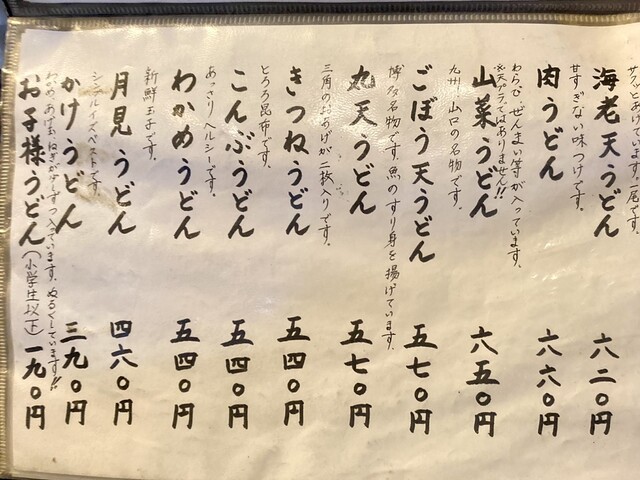 サクッとあげています。
海老天うどん 六二〇円
甘すぎない味つけです。
肉うどん 六六〇円
わらび ぜんまい等が入っています。
※天プラではありません!!
山菜うどん 六五〇円
九州、山口の名物です。
ごぼう天うどん 五七〇円
博多名物です。魚のすり身を揚げています。
丸天うどん 五七〇円
三角のおあげが二枚入りです。
きつねうどん 五四〇円
とろろ昆布です。
こんぶうどん 五四〇円
あっさりヘルシーです。
わかめうどん 五四〇円
新鮮玉子です。
月見うどん 四六〇円
シンプルイズベストです。
かけうどん 三九〇円
わかめ、あげ玉、ねぎが少しずつ入っています。ぬるくしています!!
お子様うどん(小学生以下) 一九〇円